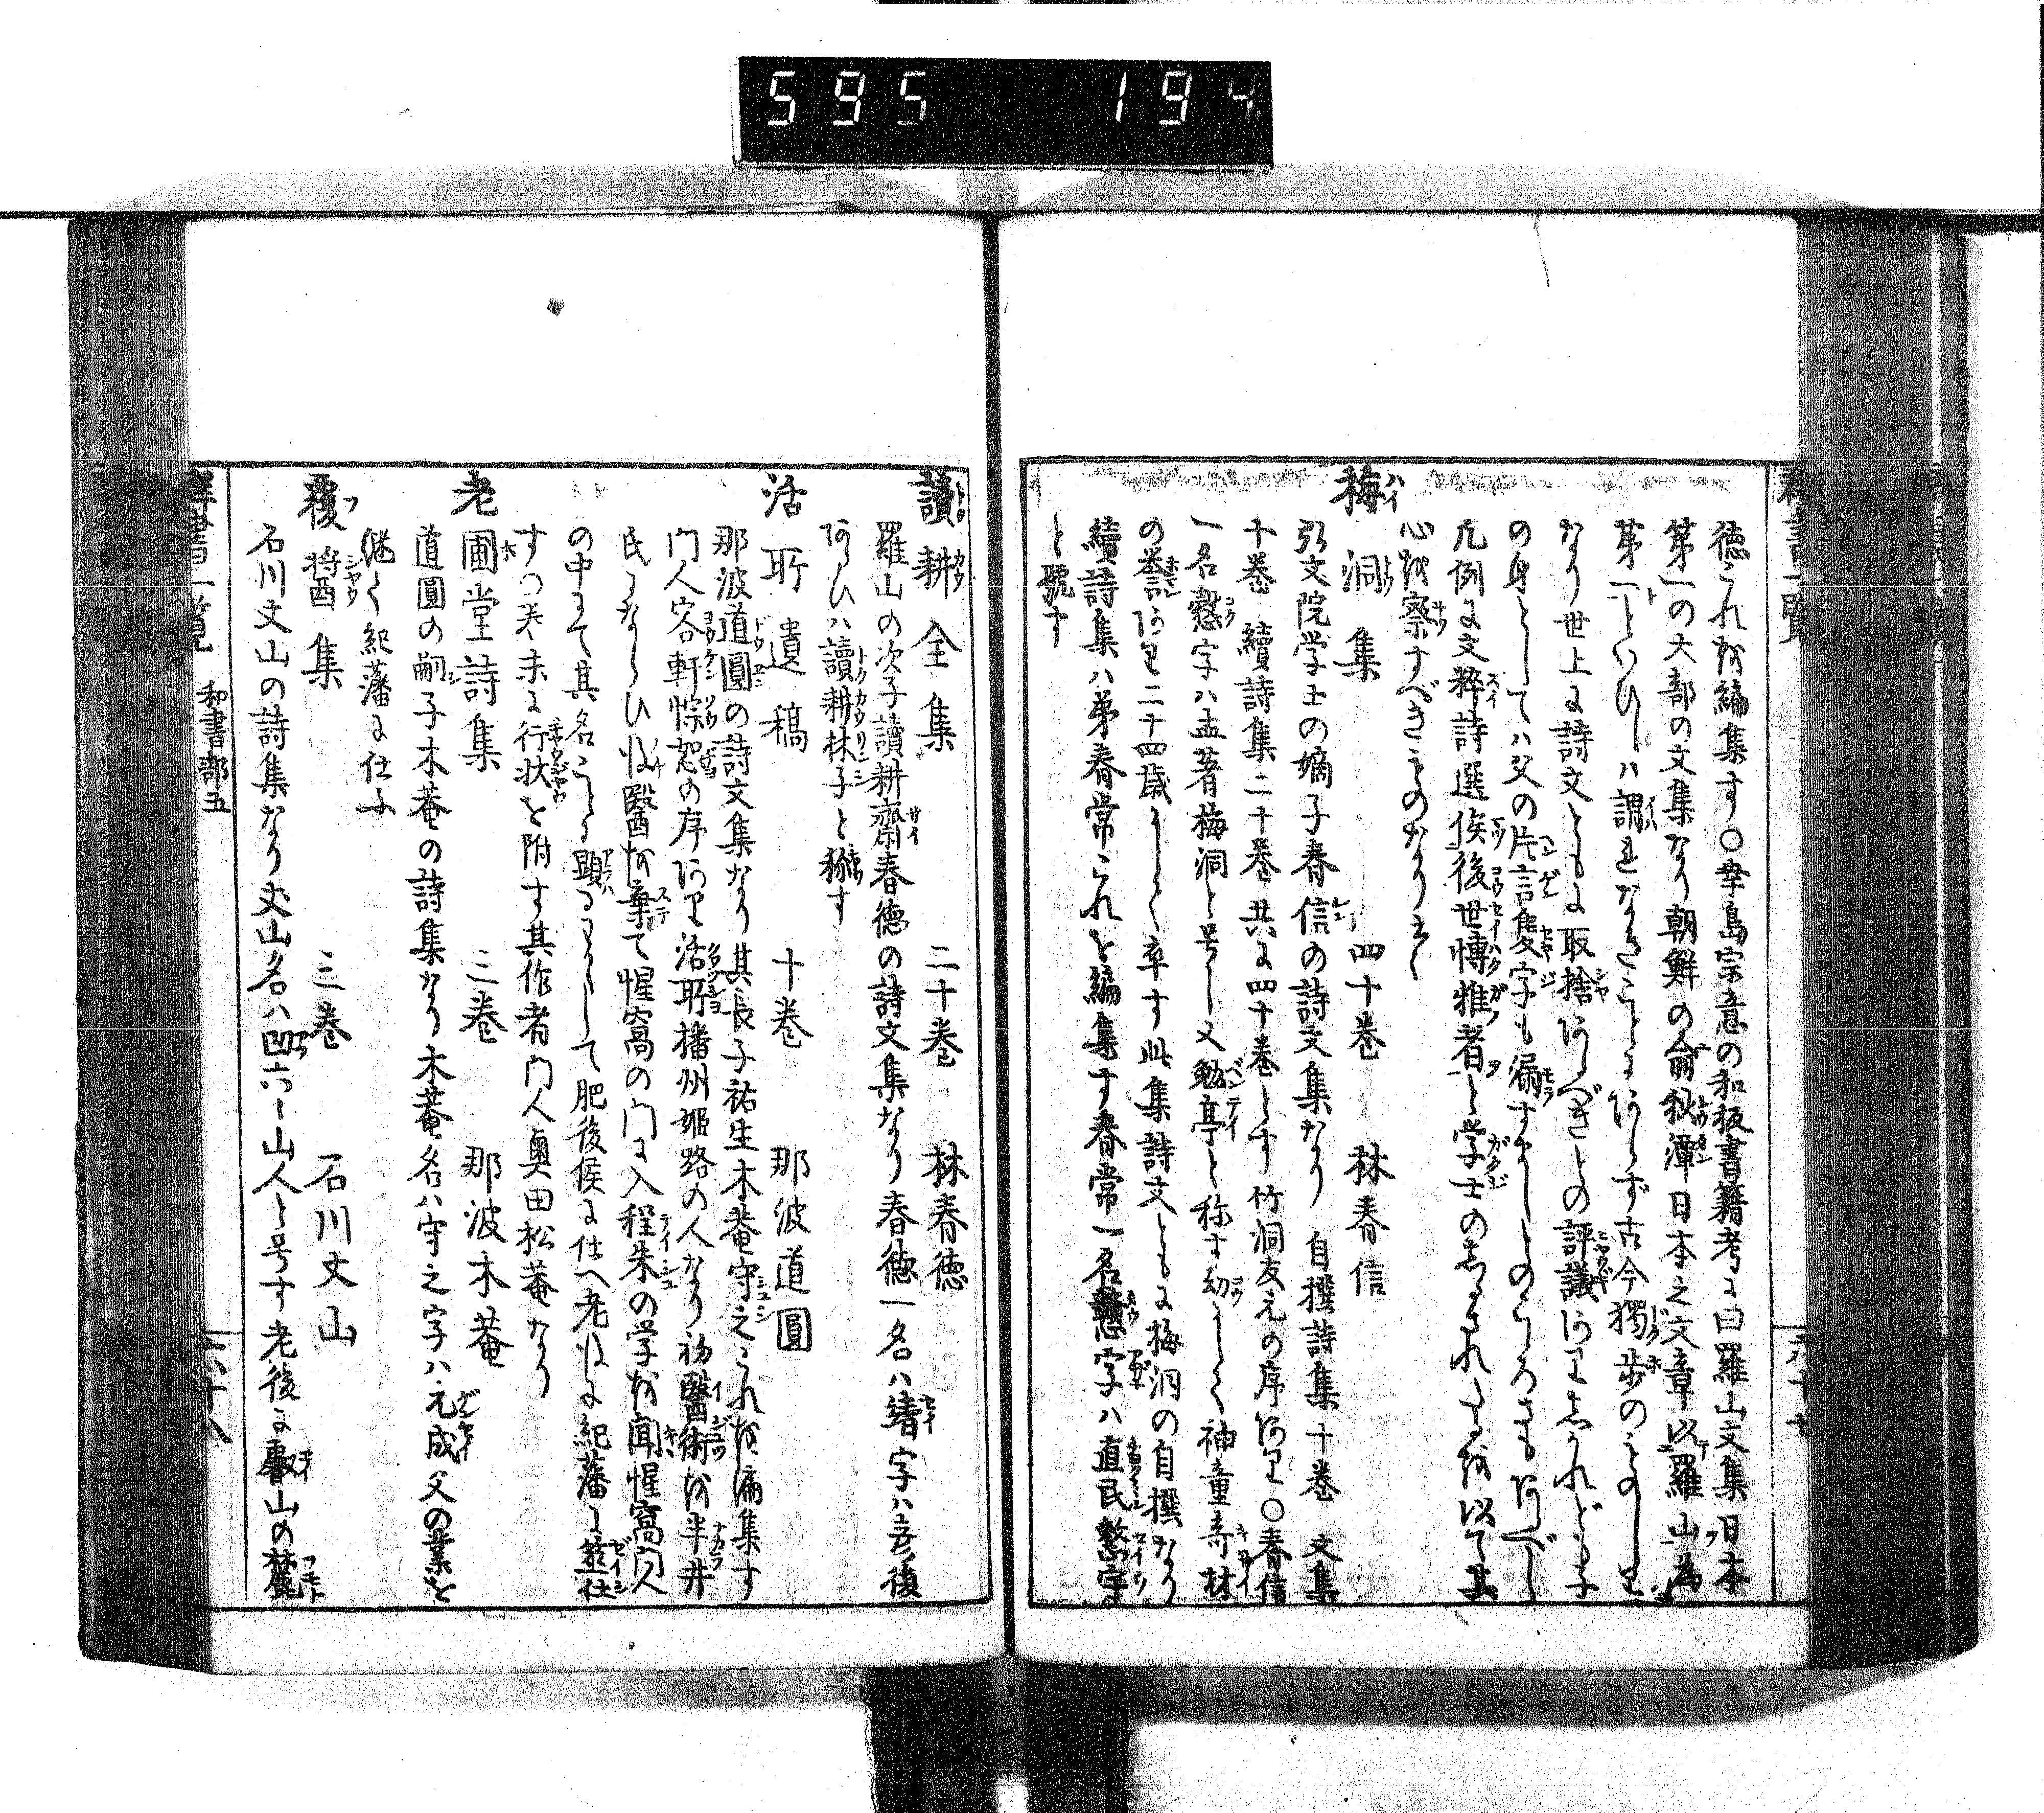 595 194
徳これを編集す○幸島宗意の和板書籍考に曰羅山文集日本
第一の大部の文集なり朝鮮の兪秋潭日本之文章以羅山為
第一といひしハ謂れなきことにあらず古今獨歩のものしり
なり世上に詩文ともに取捨あるべきとの評議ありしかれども子
の身としてハ父の片言隻字も漏すましとのこゝろさもあるべし
凡例に文粹詩選俟後世博雅者と学士のしるされたるを以て其
心を察すべきものなりとぞ
梅洞集 四十巻 林春信
弘文院学士の嫡子春信の詩文集なり 自撰詩集十巻 文集
十巻 續詩集二十巻共に四十巻とす竹洞友元の序あり○春信
一名愨字ハ孟著梅洞と号し又勉亭と称す幼にして神童奇材
の誉あり二十四歳にして卒す此集詩文ともに梅洞の自撰なり
續詩集ハ弟春常これを編集す春常一名戇字ハ直民整宇
と號す
讀耕全集 二十巻 林春徳
羅山の次子讀耕齋春徳の詩文集なり春徳一名ハ靖字ハ彦復
あるひハ讀耕林子と稱す
活所遺稿 十巻 那波道圓
那波道圓の詩文集なり其長子祐生木菴守之これを編集す
門人容軒悰恕の序あり活所播州姫路の人なり初醫術を半井
氏にならひ後醫を棄て惺窩の門に入程朱の学を聞惺窩門人
の中にて其名ことに顕るわかくして肥後侯に仕へ老後に紀藩に筮仕
すつ巻末に行状を附す其作者門人奥田松菴なり
老圃堂詩集 三巻 那波木菴
道圓の嗣子木菴の詩集なり木菴名ハ守之字ハ元成父の業を
継て紀藩に仕ふ
覆醤集 三巻 石川丈山
石川丈山の詩集なり丈山名ハ凹六々山人と号す老後に叡山の麓
群書一覧 和書部五 六十八